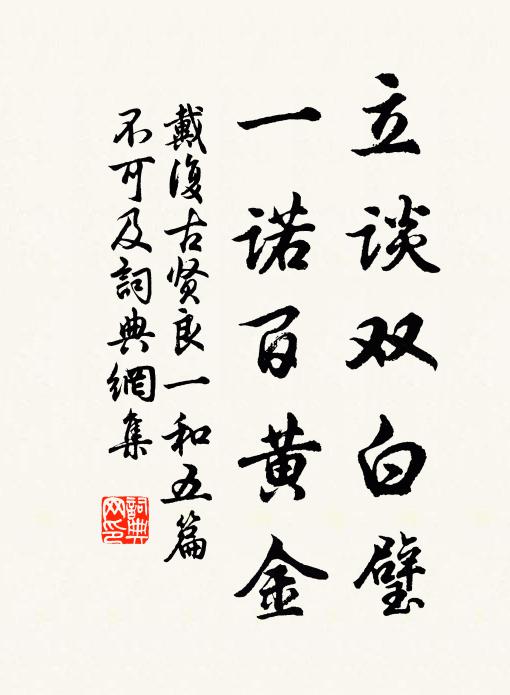 立谈双白璧
一诺百黄金
戴復古贤良一和五篇
不可及詞典網集
詞典网印